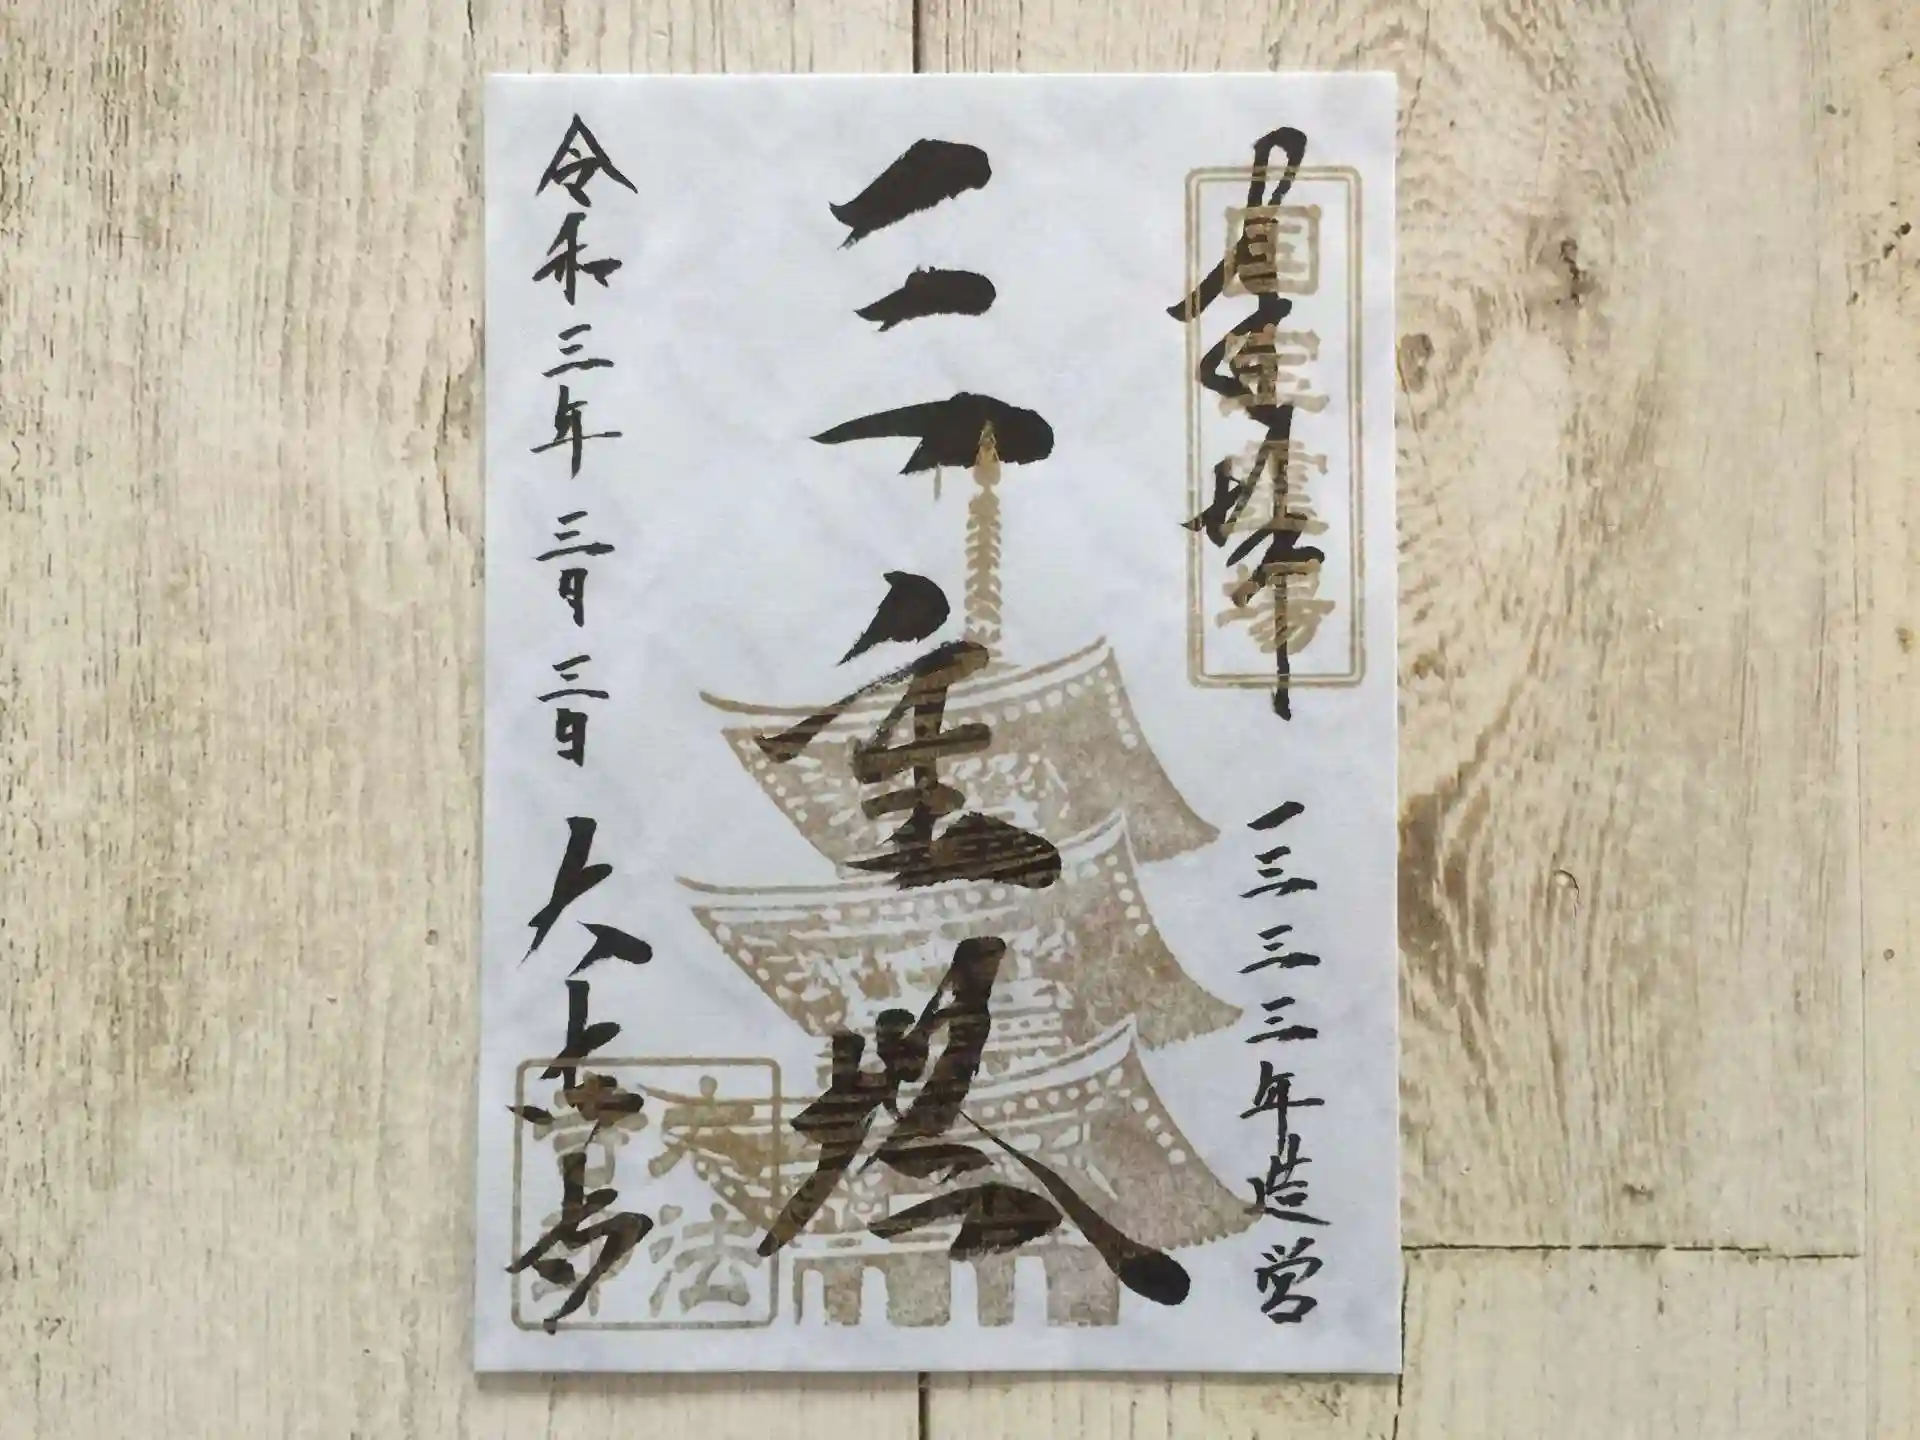 奉拝
国宝霊場
一三三三年造営
三重塔
令和三年三月三日
大法寺
大法
寺印